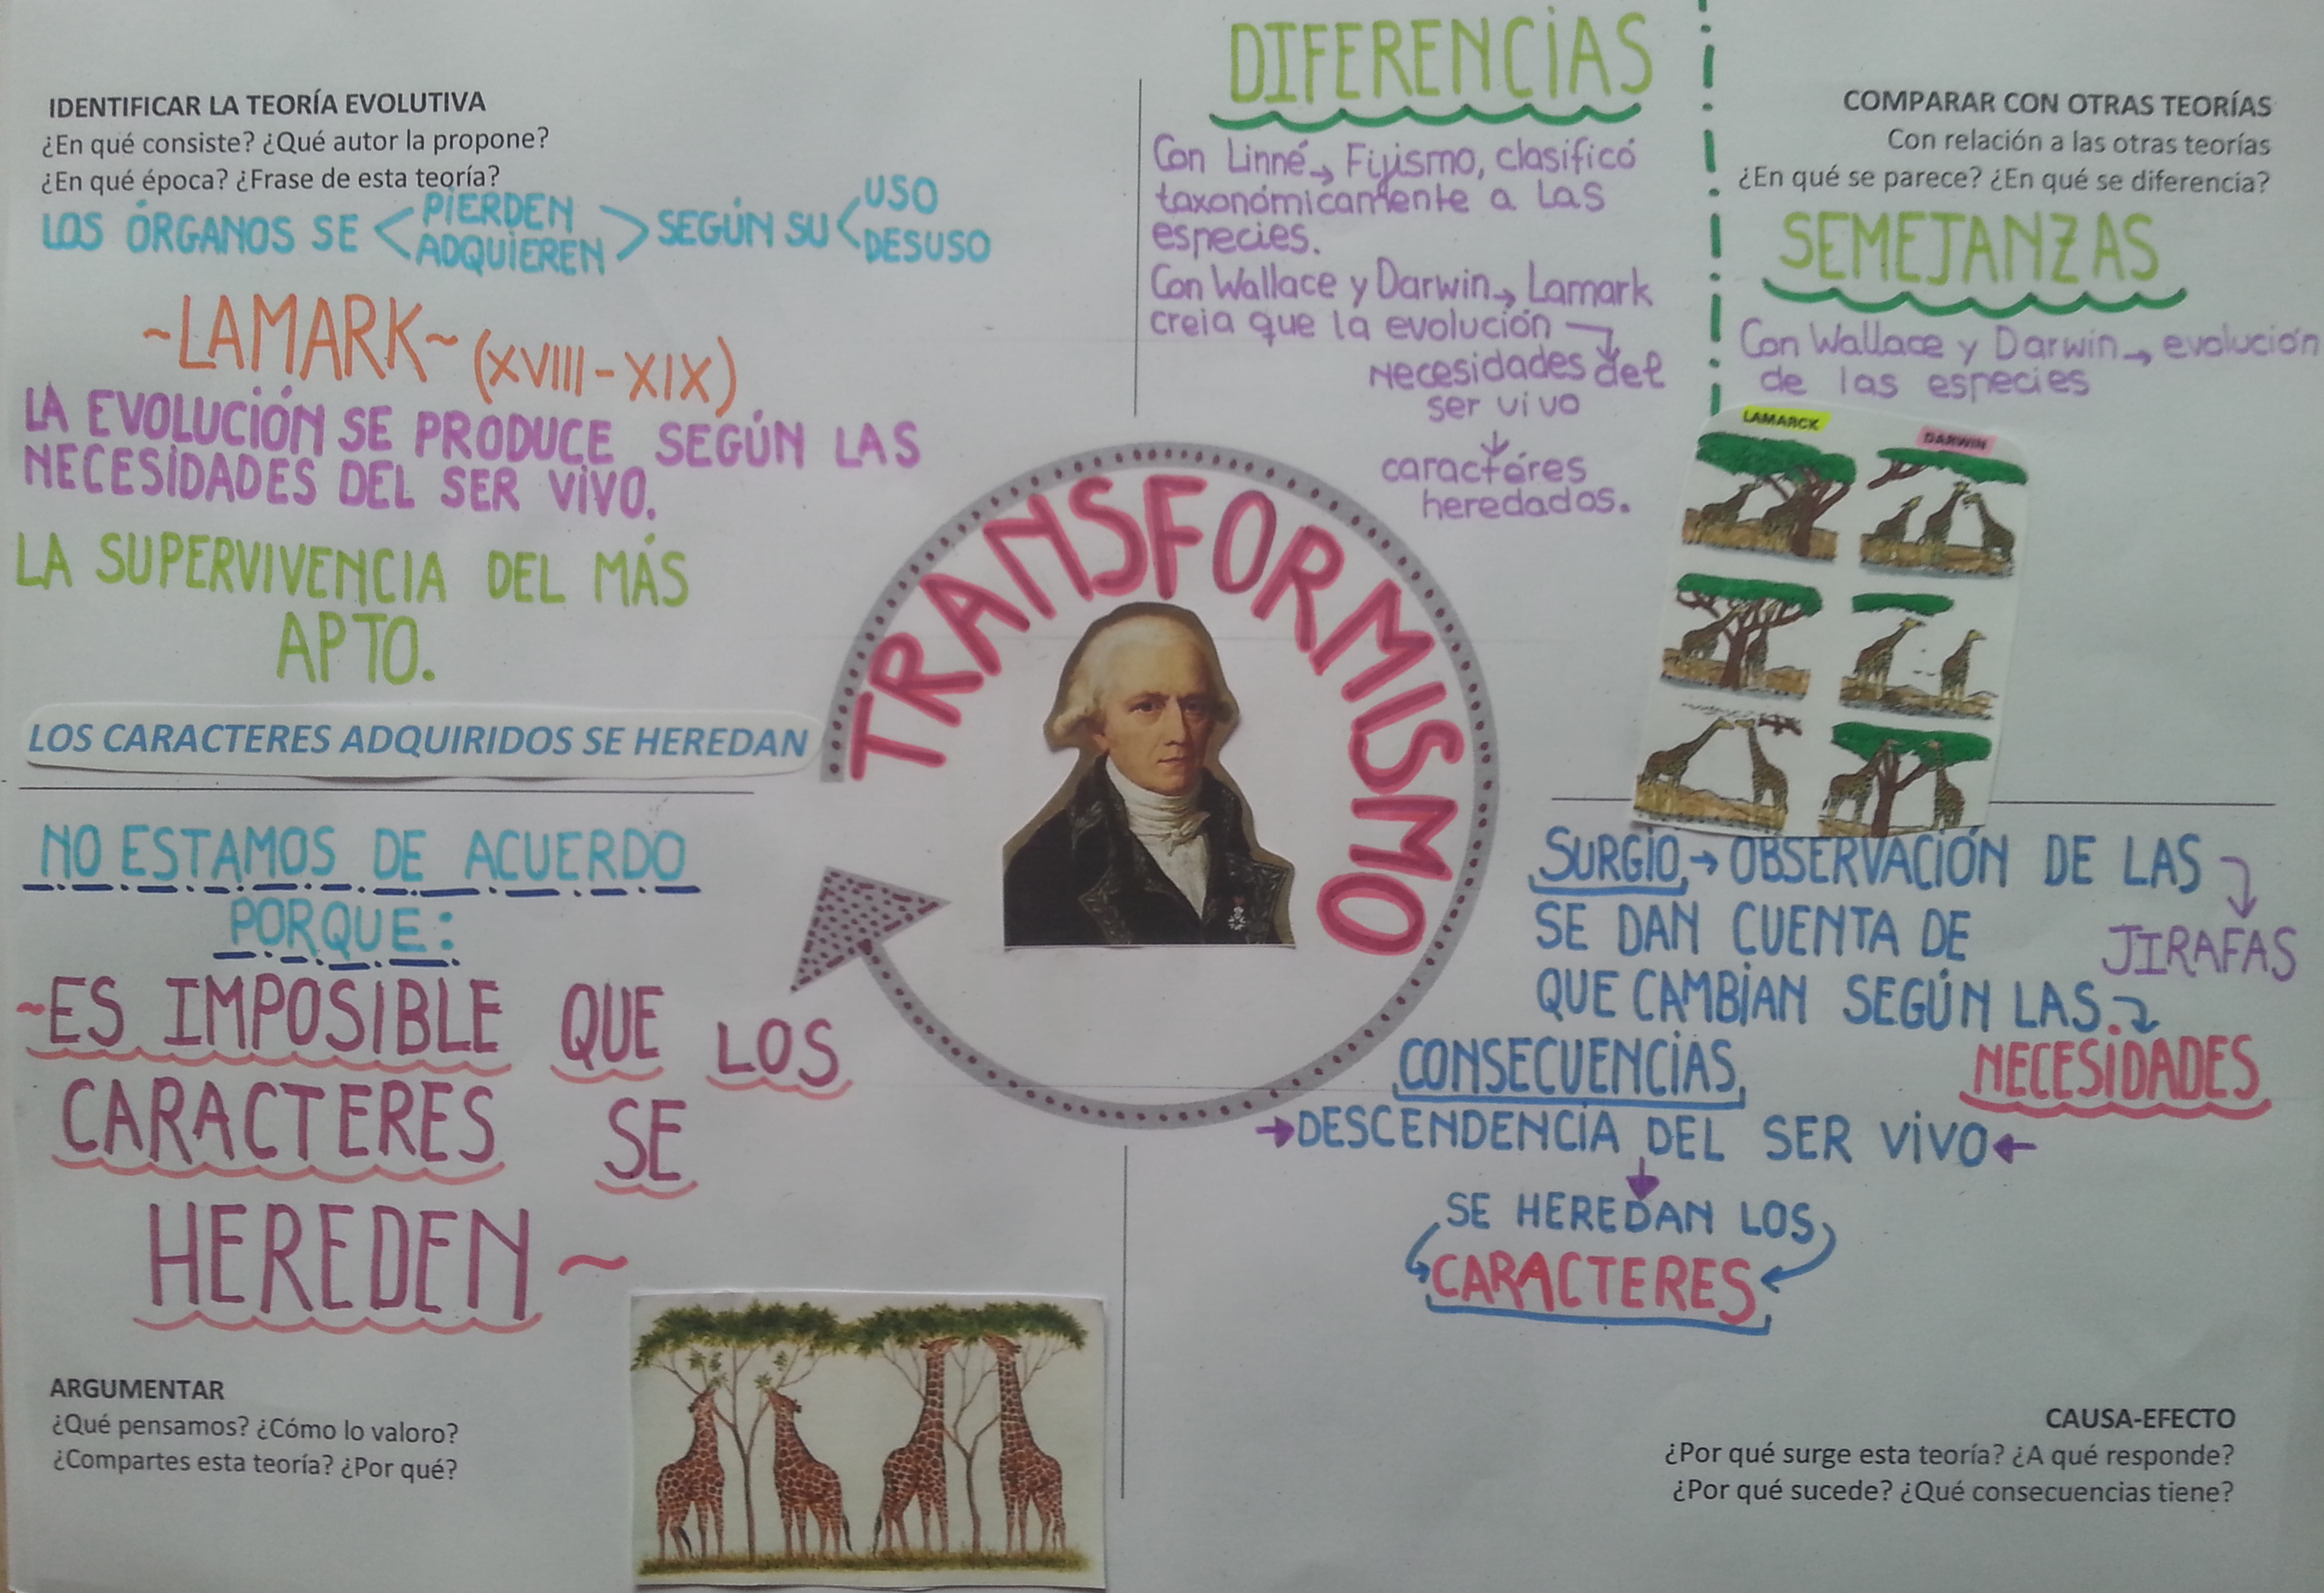 IDENTIFICAR LA TEORÍA EVOLUTIVA
¿En qué consiste? ¿Qué autor la propone?
¿En qué época? ¿Frase de esta teoría?
LOS ÓRGANOS SE < PIERDEN ADQUIEREN > SEGÚN SU < USO DESUSO
~LAMARK~ (XVIII-XIX)
LA EVOLUCIÓN SE PRODUCE SEGÚN LAS
NECESIDADES DEL SER VIVO.
LA SUPERVIVENCIA DEL MÁS
APTO.
LOS CARACTERES ADQUIRIDOS SE HEREDAN
DIFERENCIAS
Con Linné→ Fijismo, clasificó
taxonómicamente a las
especies.
Con Wallace y Darwin→ Lamark
creia que la evolución →
necesidades del
ser vivo
↓
caractéres
heredados.
COMPARAR CON OTRAS TEORÍAS
Con relación a las otras teorías
¿En qué se parece? ¿En qué se diferencia?
SEMEJANZAS
Con Wallace y Darwin→ evolución
de las especies
LAMARCK
DARWIN
TRANSFORMISMO
NO ESTAMOS DE ACUERDO
PORQUE:
~ES IMPOSIBLE QUE LOS
CARACTERES SE
HEREDEN~
ARGUMENTAR
¿Qué pensamos? ¿Cómo lo valoro?
¿Compartes esta teoría? ¿Por qué?
SURGIO→ OBSERVACIÓN DE LAS
JIRAFAS
SE DAN CUENTA DE
QUE CAMBIAN SEGÚN LAS.
NECESIDADES
CONSECUENCIAS
→DESCENDENCIA DEL SER VIVO←
↓
SE HEREDAN LOS
CARACTERES
CAUSA-EFECTO
¿Por qué surge esta teoría? ¿A qué responde?
¿Por qué sucede? ¿Qué consecuencias tiene?